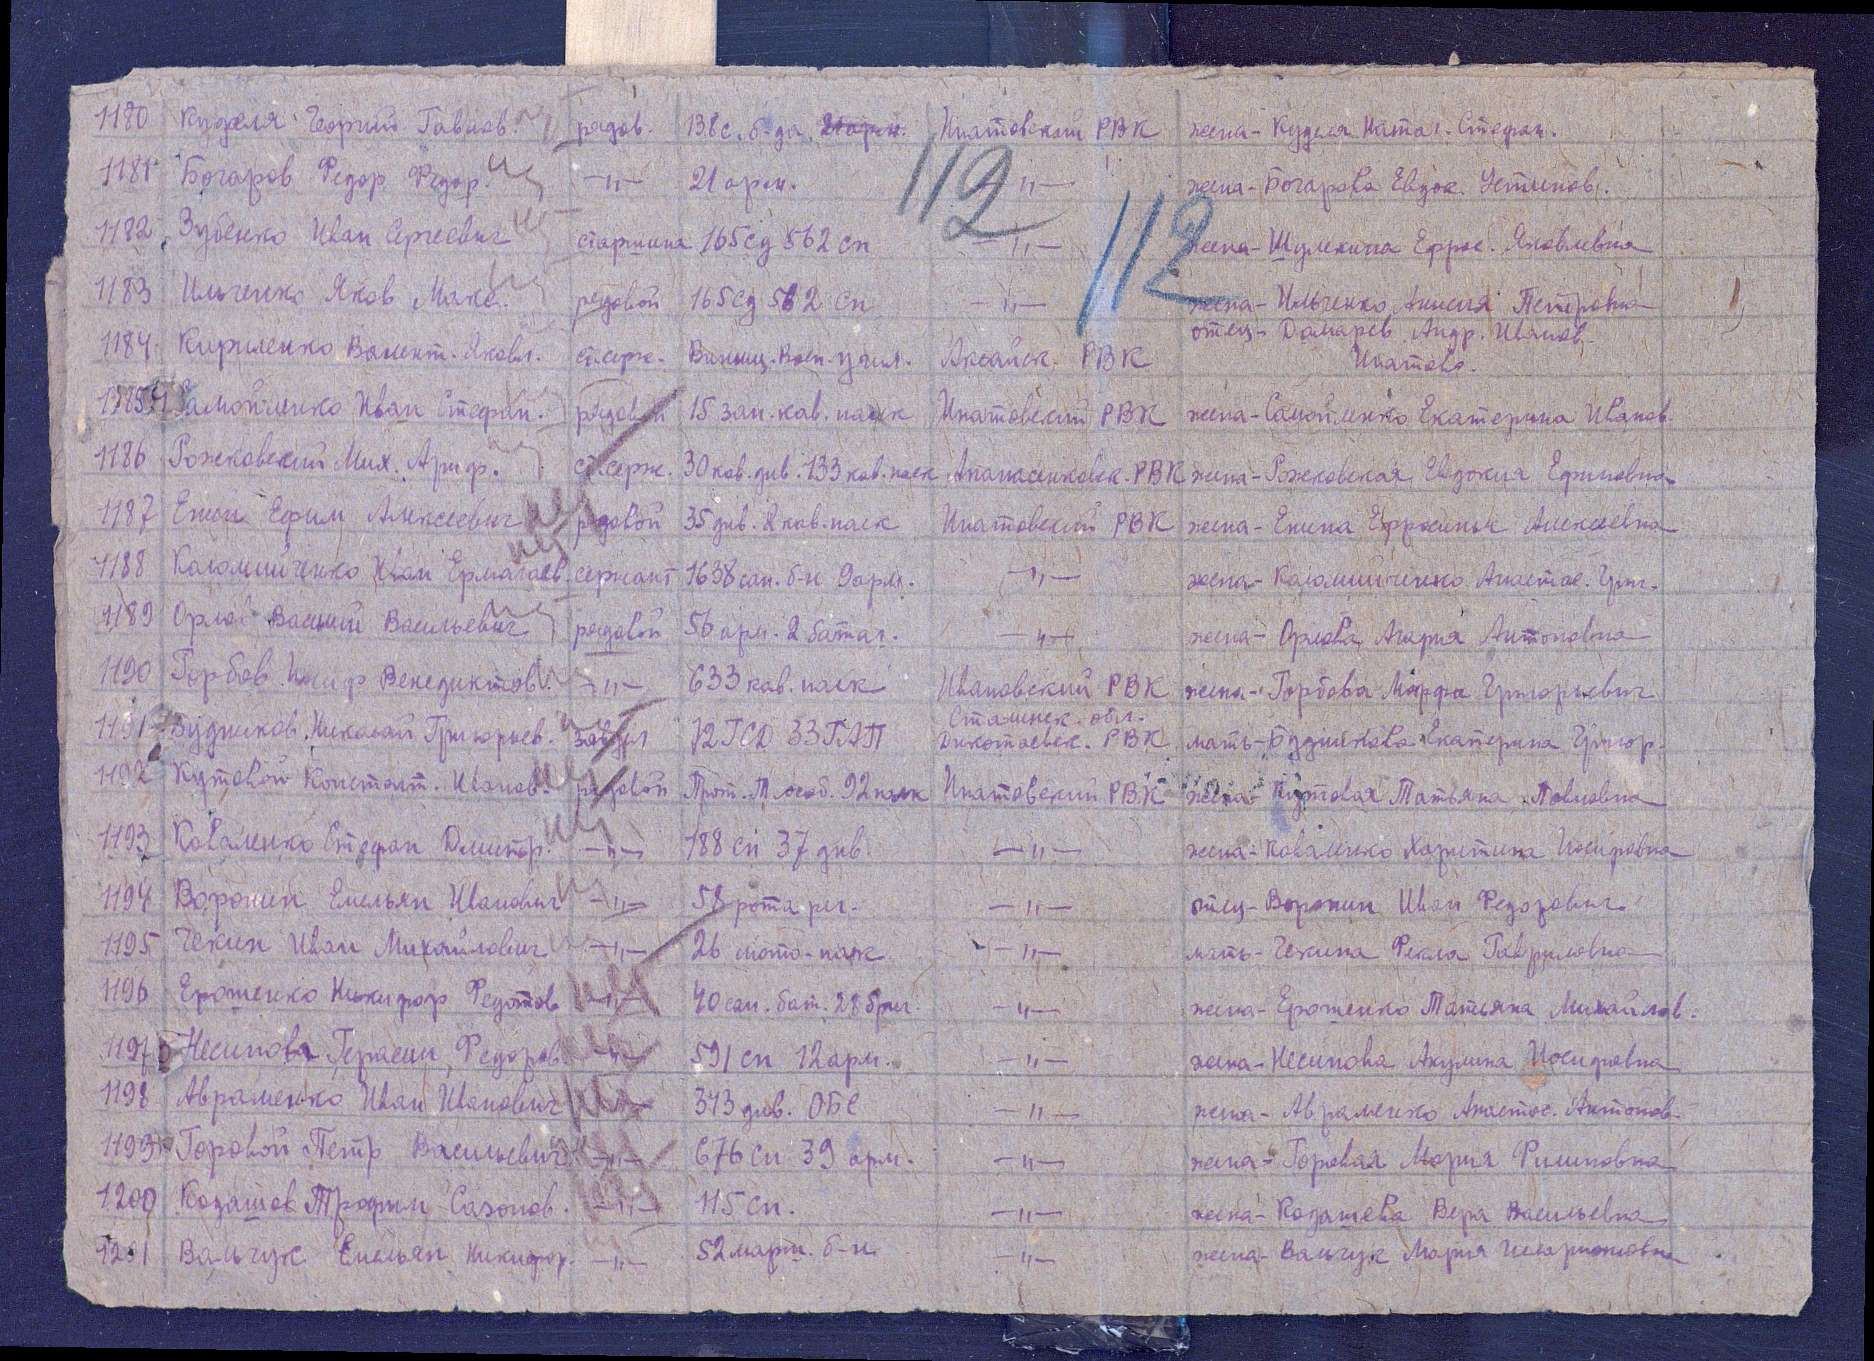 1180 Куделя Георгий Гавилов. рядов. 138 с. б-да 21 арм. Ипатовский РВК жена - Куделя Натал. Стефан.
1181 Богаров Федор Федор. —"— 21 арм. —"— жена - Богарова Евдок. Устинов.
112
1182 Зубенко Иван Сергеевич старшина 165 сд 562 сп —"— жена - Шулекина Ефрос. Яковлевна
112
1183 Ильченко Яков Макс. рядовой 165 сд 562 сп —"— жена - Ильченко Анисия Петровна
1184 Кириленко Валент. Яковл. ст.серж. Винниц. Воен. учил. Аксайск. РВК отец - Домарев Андр. Иванов.
Ипатово.
1185 Самойленко Иван Стефан. рядовой 15 зап. кав. полк Ипатовский РВК жена - Самойленко Екатерина Иванов.
1186 Рожковский Мих. Ариф. ст.серж. 30 кав. див. 133 кав. полк Апанасенковск. РВК жена - Рожковская Евдокия Ефимовна
1187 Ефим Алексеевич рядовой 35 див. 2 кав. полк Ипатовский РВК жена - Енина Ефросинья Алексеевна
1188 Коломийченко Иван Ермолаев. сержант 1638 сап. б-н 9 арм. —"— жена - Коломийченко Анастас. Григ.
1189 Орлов Василий Васильевич рядовой 56 арм. 2 батал. —"— жена - Орлова Мария Антоновна
1190 Горбов Иосиф Венедиктов. —"— 633 кав. полк Ивановский РВК жена - Горбова Марфа Григорьевич
Сталинск. обл.
1191 Будников Николай Григорьев. 72 ГСД 33 ГАП РВК мать - Будникова Екатерина Григор.
1192 Кутовой Констант. Иванов. рядовой 92 полк Ипатовский РВК жена - Кутовая Татьяна Павловна
1193 Коваленко Стефан Дмитр. —"— 188 сп 37 див. —"— жена - Коваленко Харитина Иосифовна
1194 Воронин Емельян Иванович —"— 58 рота рег. —"— отец - Воронин Иван Федорович.
1195 Чекин Иван Михайлович —"— 26 мото-полк —"— мать - Чекина Фекла Гавриловна
1196 Ерошенко Никифор Федотов —"— 40 сап. бат. 28 бриг. —"— жена - Ерошенко Татьяна Михайлов.
1197 Несинова Герасим Федоров. —"— 591 сп 12 арм. —"— жена - Несинова Акулина Иосифовна
1198 Авраменко Иван Иванович —"— 343 див. ОБС —"— жена - Авраменко Анастас. Антонов.
1199 Горовой Петр Васильевич —"— 676 сп 39 арм. —"— жена - Горовая Мария Филиповна
1200 Кодашов Трофим Сазонов. —"— 115 сп. —"— жена - Кодашева Вера Васильевна
1201 Вальчук Емельян Никифор. —"— 52 марш. б-н —"— жена - Вальчук Мария Илларионовна